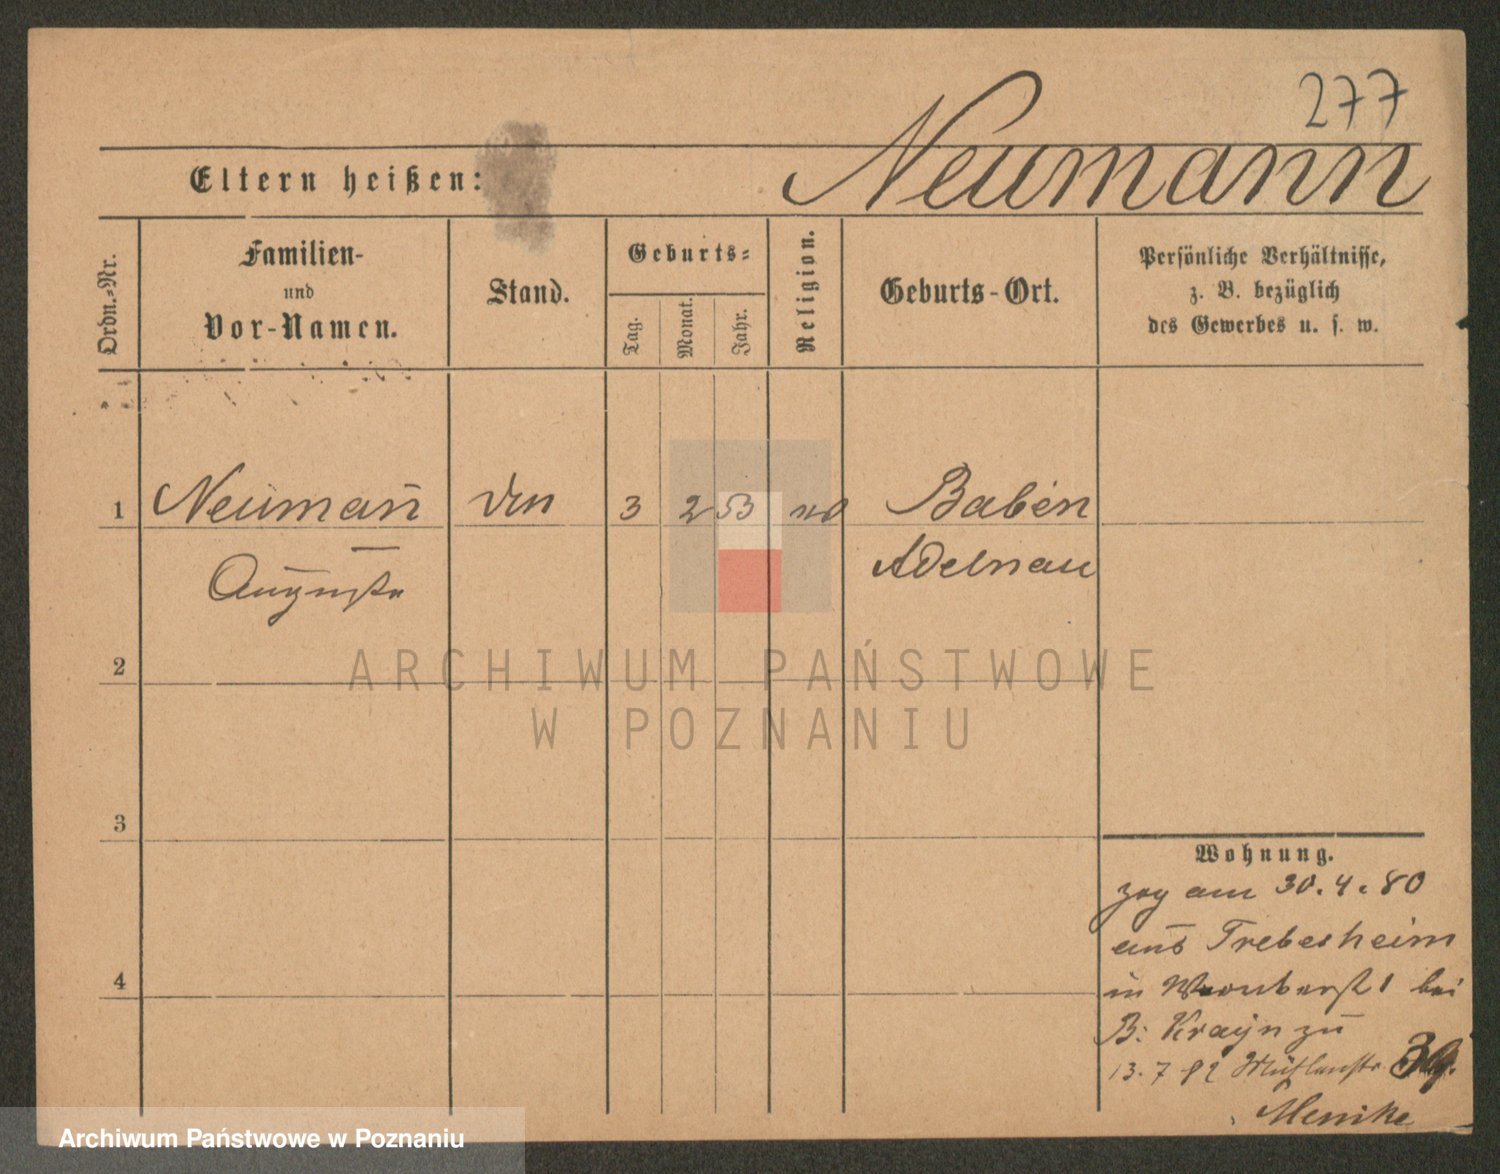 277
Neumann
Eltern heißen:
Ordn.-Nr.
Familien-
und
Vor-Namen.
Stand.
Geburts-
Tag.
Monat.
Jahr.
Religion.
Geburts-Ort.
Persönliche Verhältnisse,
z. B. bezüglich
des Gewerbes u. s. w.
1 Neuman̄ 3 2 53 Baben
Auguste Adelnau
2
3
4
Wohnung.
zog am 30.4.80
aus Trebesheim
in 1 bei
B. Krayn zu
13.7.82 Mühlenstr.
Menike
ARCHIWUM PAŃSTWOWE
W POZNANIU
Archiwum Państwowe w Poznaniu